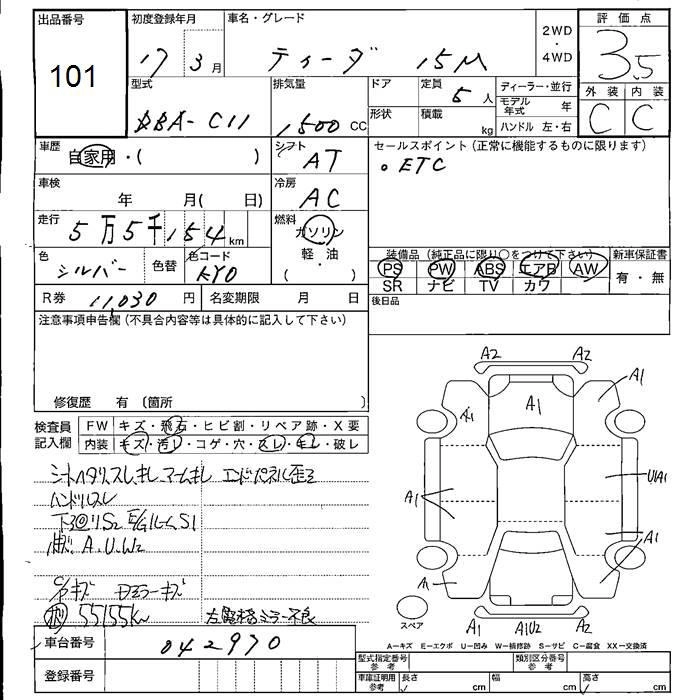 出品番号 初度登録年月 車名・グレード 2WD ・ 4WD 評価点
101 17 3月 ティーダ 15M 3.5
型式 排気量 ドア 定員 5人 ディーラー・並行 外装 内装
DBA-C11 1500 CC 形状 積載 kg モデル年式 年 C C
ハンドル 左・右
車歴 自家用・( ) シフト AT セールスポイント (正常に機能するものに限ります)
。ETC
車検 年 月( 日) 冷房 AC
走行 5万5千154km 燃料 ガソリン
軽・油
( )
色 シルバー 色替 色コード KY0 装備品 (純正品に限り○をつけて下さい) 新車保証書
PS PW ABS エアB AW 有・無
SR ナビ TV カワ
R券 11,030 円 名変期限 月 日 後日品
注意事項申告欄 (不具合内容等は具体的に記入して下さい)
修復歴 有 (箇所 )
検査員記入欄 FW キズ・飛石・ヒビ割・リペア跡・X要
内装 キズ・汚レ・コゲ・穴・スレ・キレ・破レ
シートヘタリ、スレ、キレ アームキレ エンドパネル歪ミ
ハンドルスレ
下廻りS2 E/GルームS1
A.U.W2
キズ ドアミラーキズ
55155km
ミラー不良
A2 A2
A1 A1 A1
A1 U1A1
A1
A1
スペア A1 A1U2 A2
A-キズ E-エクボ U-凹み W-補修跡 S-サビ C-腐食 XX-交換済
車台番号 042970
登録番号
型式指定番号 参考 類別区分番号 参考
車庫証明用 参考 長さ cm 幅 cm 高さ cm